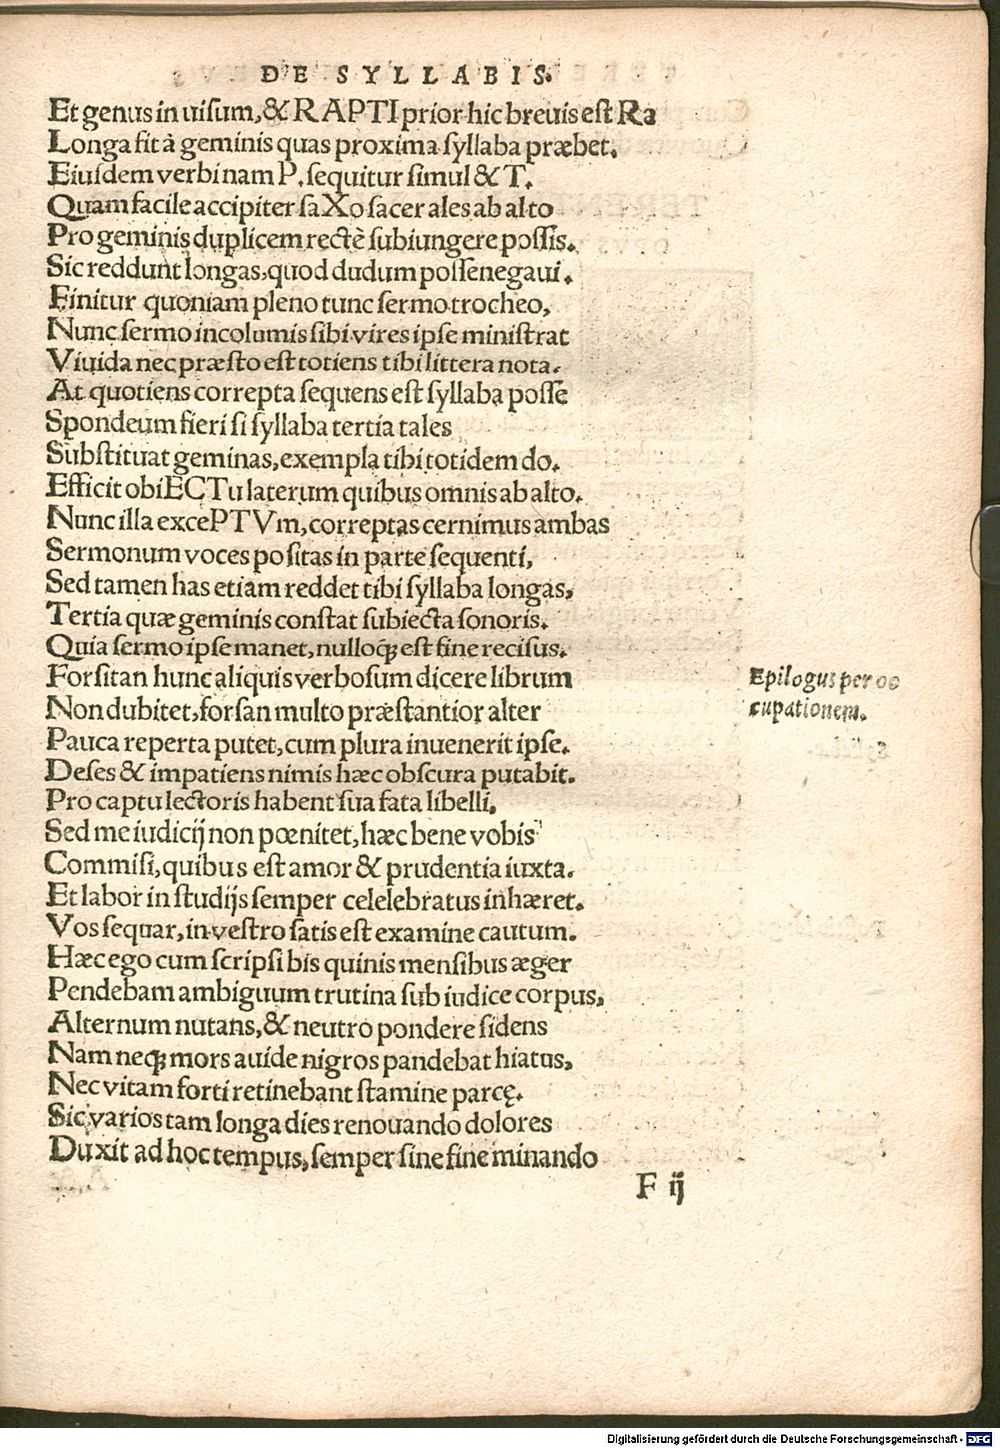 DE SYLLABIS.
Et genus in uisum, & RAPTI prior hic breuis est Ra
Longa fit à geminis quas proxima syllaba præbet.
Eiusdem verbi nam P. sequitur simul & T.
Quam facile accipiter saXo sacer ales ab alto
Pro geminis duplicem rectè subiungere possis.
Sic reddunt longas, quod dudum posse negaui.
Finitur quoniam pleno tunc sermo trocheo,
Nunc sermo incolumis sibi vires ipse ministrat
Viuida nec præsto est totiens tibi littera nota.
At quotiens correpta sequens est syllaba posse
Spondeum fieri si syllaba tertia tales
Substituat geminas, exempla tibi totidem do.
Efficit obiECTu laterum quibus omnis ab alto.
Nunc illa excePTVm, correptas cernimus ambas
Sermonum voces positas in parte sequenti,
Sed tamen has etiam reddet tibi syllaba longas,
Tertia quæ geminis constat subiecta sonoris.
Quia sermo ipse manet, nulloq; est fine recisus.
Forsitan hunc aliquis verbosum dicere librum
Non dubitet, forsan multo præstantior alter
Pauca reperta putet, cum plura inuenerit ipse.
Deses & impatiens nimis hæc obscura putabit.
Pro captu lectoris habent sua fata libelli,
Sed me iudicij non pœnitet, hæc bene vobis
Commisi, quibus est amor & prudentia iuxta.
Et labor in studijs semper celelebratus inhæret.
Vos sequar, in vestro satis est examine cautum.
Hæc ego cum scripsi bis quinis mensibus æger
Pendebam ambiguum trutina sub iudice corpus,
Alternum nutans, & neutro pondere sidens
Nam neq; mors auide nigros pandebat hiatus,
Nec vitam forti retinebant stamine parcę.
Sic varios tam longa dies renouando dolores
Duxit ad hoc tempus, semper sine fine minando
F ij
Epilogus per oc
cupationem.
Digitalisierung gefördert durch die Deutsche Forschungsgemeinschaft - DFG